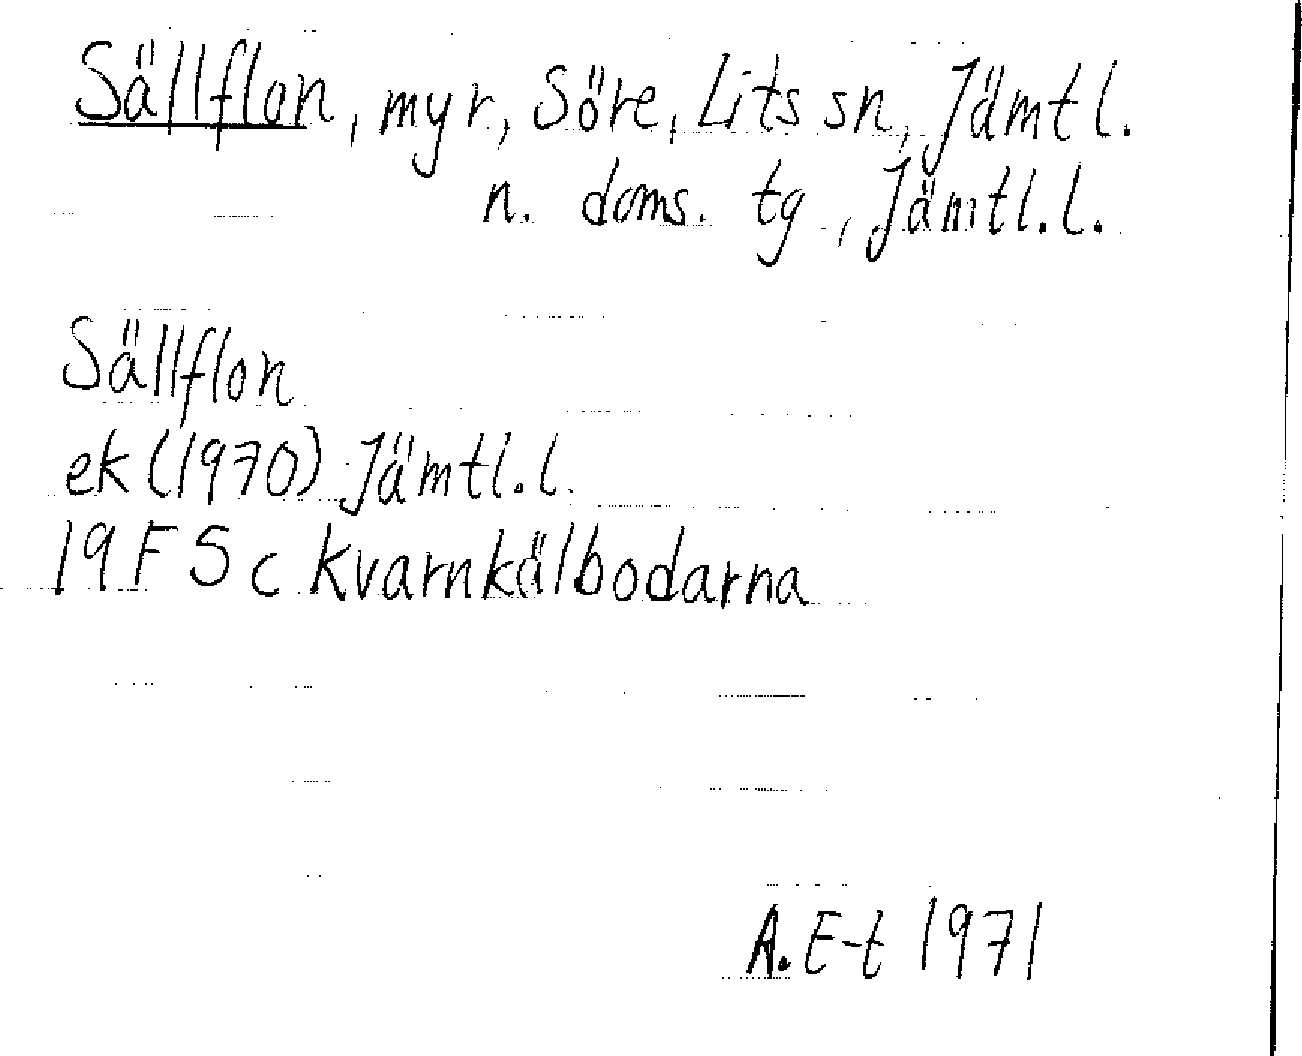 Sällflon, myr, Söre, Lits sn, Jämtl.
n. doms. tg, Jämtl. l.
Sällflon
ek (1970) Jämtl. l.
19F 5c Kvarnkälbodarna
A. E-t 1971